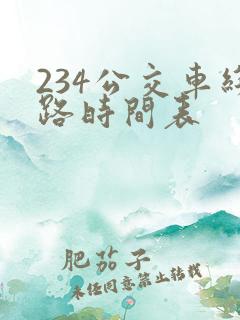 234公交車綫
路時間表
肥茄子
未任同意禁止转载